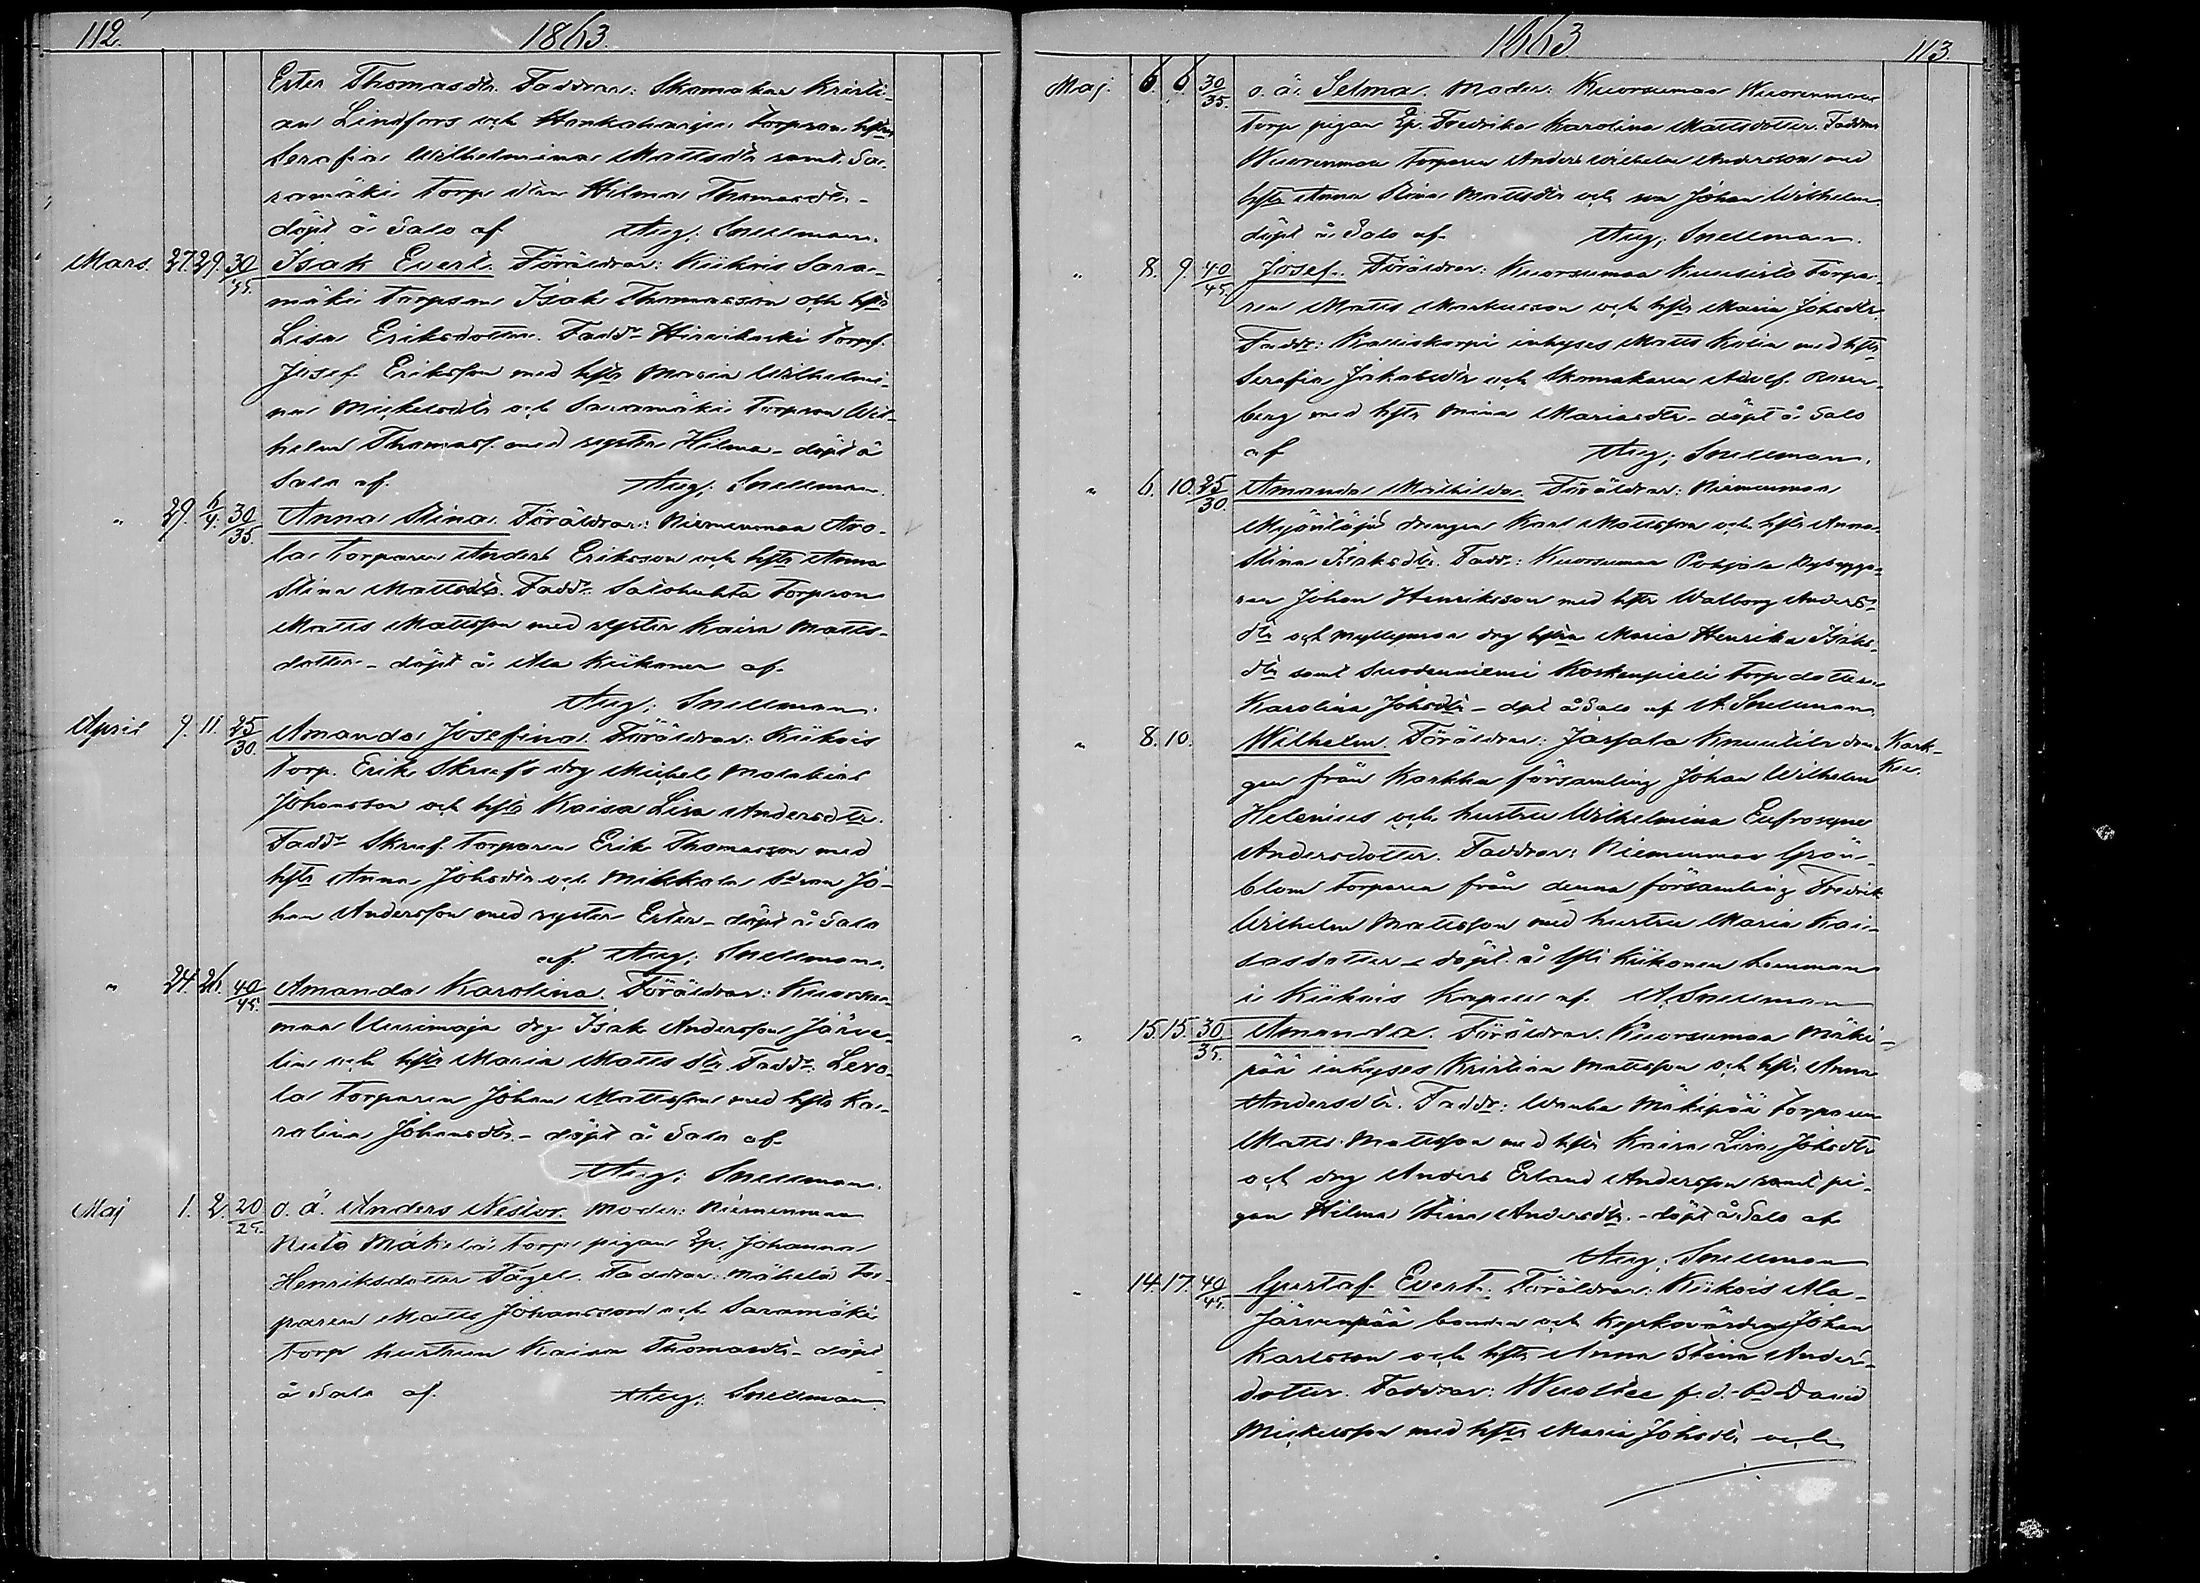 112. 1863.
Ester Thomasdtr. Faddrar: Skomakar Kristi-
an Lindfors och torparen hstr
Serafia Wilhelmina Mattsdtr samt Sa-
ramäki torp dtrn Hilma Thomasdtr -
döpt å Salo af Aug. Snellman.
Mars. 27. 29. 30/35. Isak Evert. Föräldrar: Kiikois Sara-
mäki torparen Isak Thomasson och hstr
Lisa Eriksdotter. Faddr torpf.
Josef Eriksson med hstr Maria Wilhelmi-
na Michelsdtr och Saaramäki torparen Wil-
helm Thomass. med syster Hilma - döpt å
Salo af. Aug. Snellman.
" 29. 6/4. 30/35. Anna Stina. Föräldrar: Niemenmaa Aro-
la torparen Anders Eriksson och hstr Anna
Stina Mattsdtr. Faddr torparen
Matts Mattsson med syster Kaisa Matts-
dotter - döpt å Ala Kiikonen af.
Aug. Snellman.
April 9. 11. 25/30. Amanda Josefina. Föräldrar: Kiikois
torp. Erik Skrefs drg Michel
Johansson och hstr Kaisa Lisa Andersdtr.
Faddr Skref torparen Erik Thomasson med
hstr Anna Johsdtr och Mikkola sonen Jo-
han Andersson med syster Ester - döpt å Salo
af Aug. Snellman.
" 24. 26. 40/45. Amanda Karolina. Föräldrar: Kuorsu-
maa Uusimaja drg Isak Andersson Järve-
lin och hstr Maria Mattsdtr. Faddr. Levo-
la torparen Johan Mattsson med hstr Ka-
rolina Johansdtr. - döpt å Salo af
Aug. Snellman.
Maj 1. 2. 20/25. o. ä. Anders Nestor. Moder: Niemenmaa
Mäkelä torps pigan Ep. Johanna
Henriksdotter Fågel. Faddrar. Mäkelä tor-
paren Matts Johansson och Saramäki
torp hustrun Kaisa Thomasdtr - döpt
å Salo af. Aug. Snellman.
1863. 113.
Maj. 6. 6. 30/35. o. ä. Selma. Moder: Kuorsumaa Wuorenmaa
torp pigan Ep. Fredrika Karolina Mattsdotter. Faddrar
Wuorenmaa torparen Anders Wilhelm Andersson med
hstr Anna Stina Mattsdtr och son Johan Wilhelm.
döpt å Salo af Aug. Snellman.
" 8. 9. 40/45. Josef. Föräldrar: Kuorsumaa Kuusisto torpa-
ren Matts Markusson och hstr Maria Johsdtr
Faddr: Kalliokorpi inhyses Matts Kolin med hstr
Serafia Jakobsdtr och Skomakaren Adolf Rosen-
berg med hstr Mina Mariasdtr - döpt å Salo
af Aug. Snellman.
" 6. 10. 25/30. Amanda Mathilda. Föräldrar: Niemenmaa
drengen Karl Mattsson och hstr Anna
Stina Isaksdtr. Faddr: Kuorsumaa Pohjola Nybygga-
ren Johan Henriksson med hstr Walborg Anders-
dtr och Myllymaa drg hstrn Maria Henrika Isaks-
dtr samt Suodenniemi Koskenpieli torp dottern
Karolina Johsdtr - dpt å Salo af A. Snellman.
" 8. 10. Wilhelm. Föräldrar: Jaffala Knuutila dren- Kark-
gen från Karkku församling Johan Wilhelm ku.
Helenius och hustru Wilhelmina Eufrosyne
Andersdotter. Faddrar: Niemenmaa Grön-
blom torparen från denna församling Fredrik
Wilhelm Mattsson med hustru Maria Kai-
sasdotter - döpt å Yli Kiikonen hemman
i Kiikois Kapell af. A. Snellman
" 15. 15. 30/35. Amanda. Föräldrar. Kuorsumaa Mäki-
pää inhyses Kristian Mattsson och hstr Anna
Andersdtr. Faddr: Wanha Mäkipää torparen
Matts Mattsson med hstr Kaisa Lisa Johsdtr
och drg Anders Erland Andersson samt pi-
gan Hilma Stina Andersdtr. - döpt å Salo af
Aug. Snellman
" 14. 17. 40/45. Gustaf Evert. Föräldrar: Kiikois Ala-
Järvenpää bonden och Kyrkovärden Johan
Karlsson och hstr Anna Stina Anders-
dotter. Faddrar: f. d. bd David
Mickelsson med hstr Maria Johsdtr och